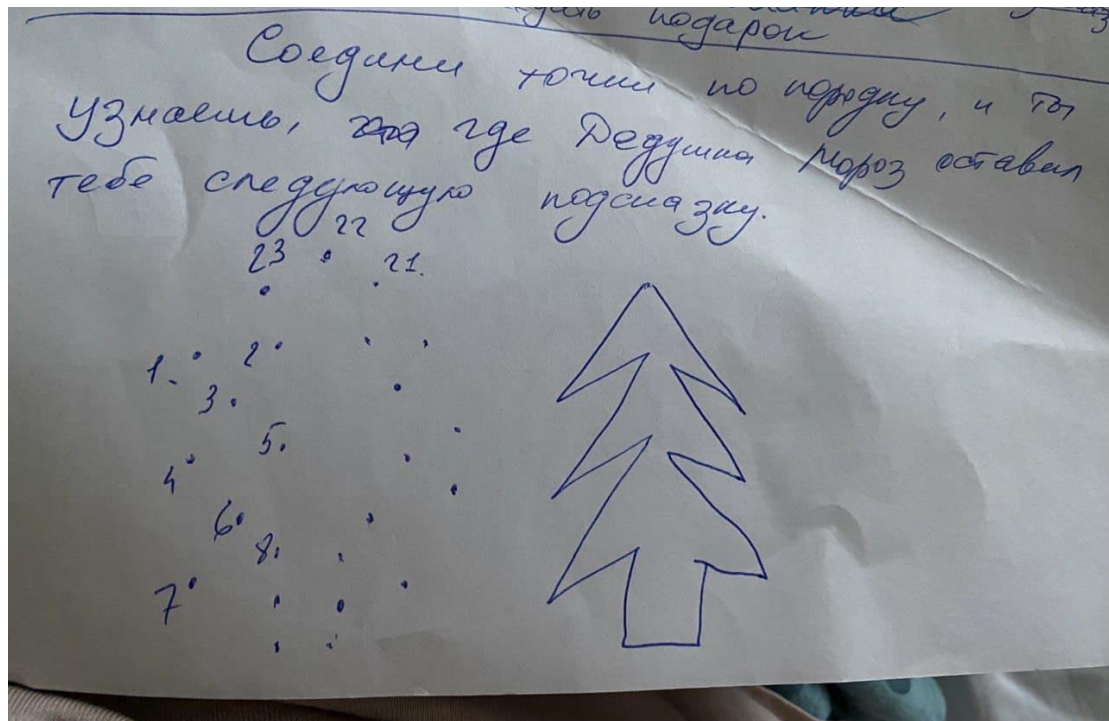 подарок
Соедини точки по порядку, и ты
узнаешь, где Дедушка Мороз оставил
тебе следующую подсказку.
22
23 21.
1. 2
3
5.
4
6
8.
7